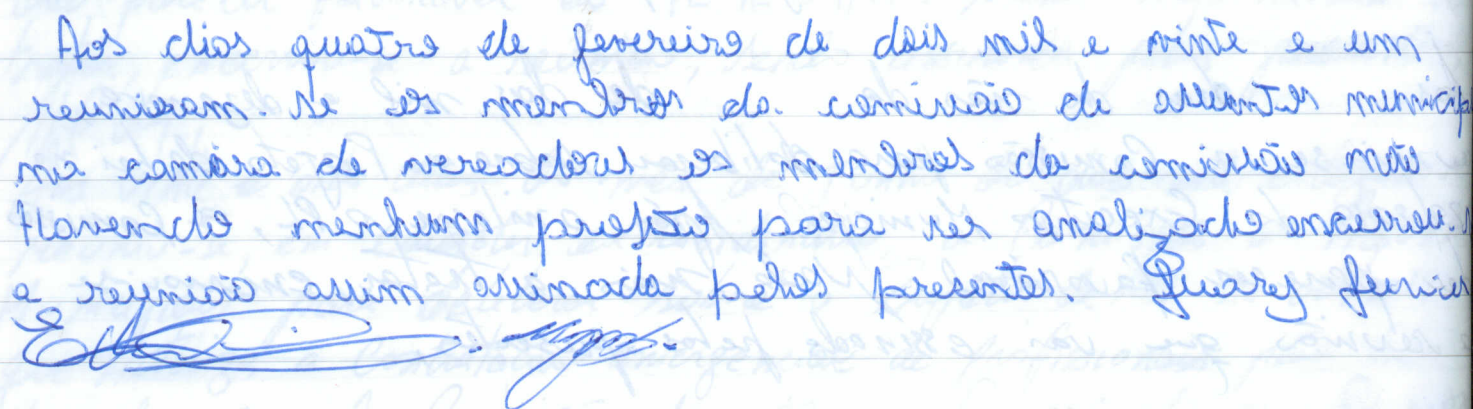 Aos dias quatro de fevereiro de dois mil e vinte e um
reuniram. se os membros da. comissão de assuntos municip
na camara de vereadores os membros da comissão não
Havendo nenhum projeto para ser analizado encerrou. s
a reunião assim assinada pelos presentes. Juarez Junior